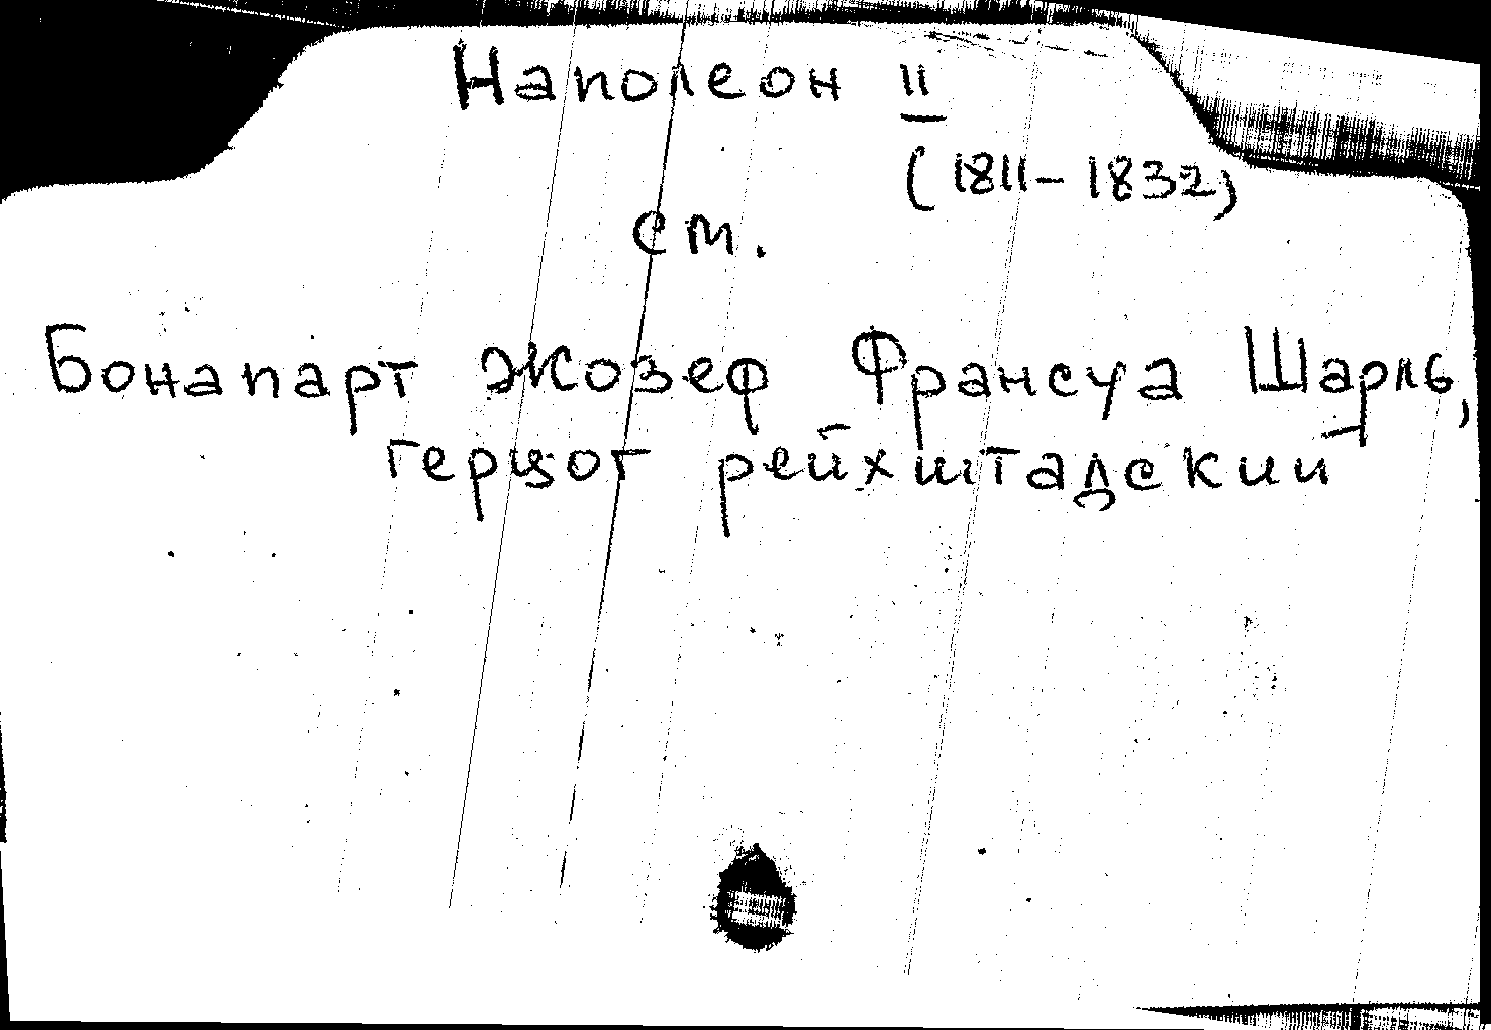 Наполеон II
(1811–1832)
см.
Бонапарт Жозеф Франсуа Шарль,
герцог рейхштадский